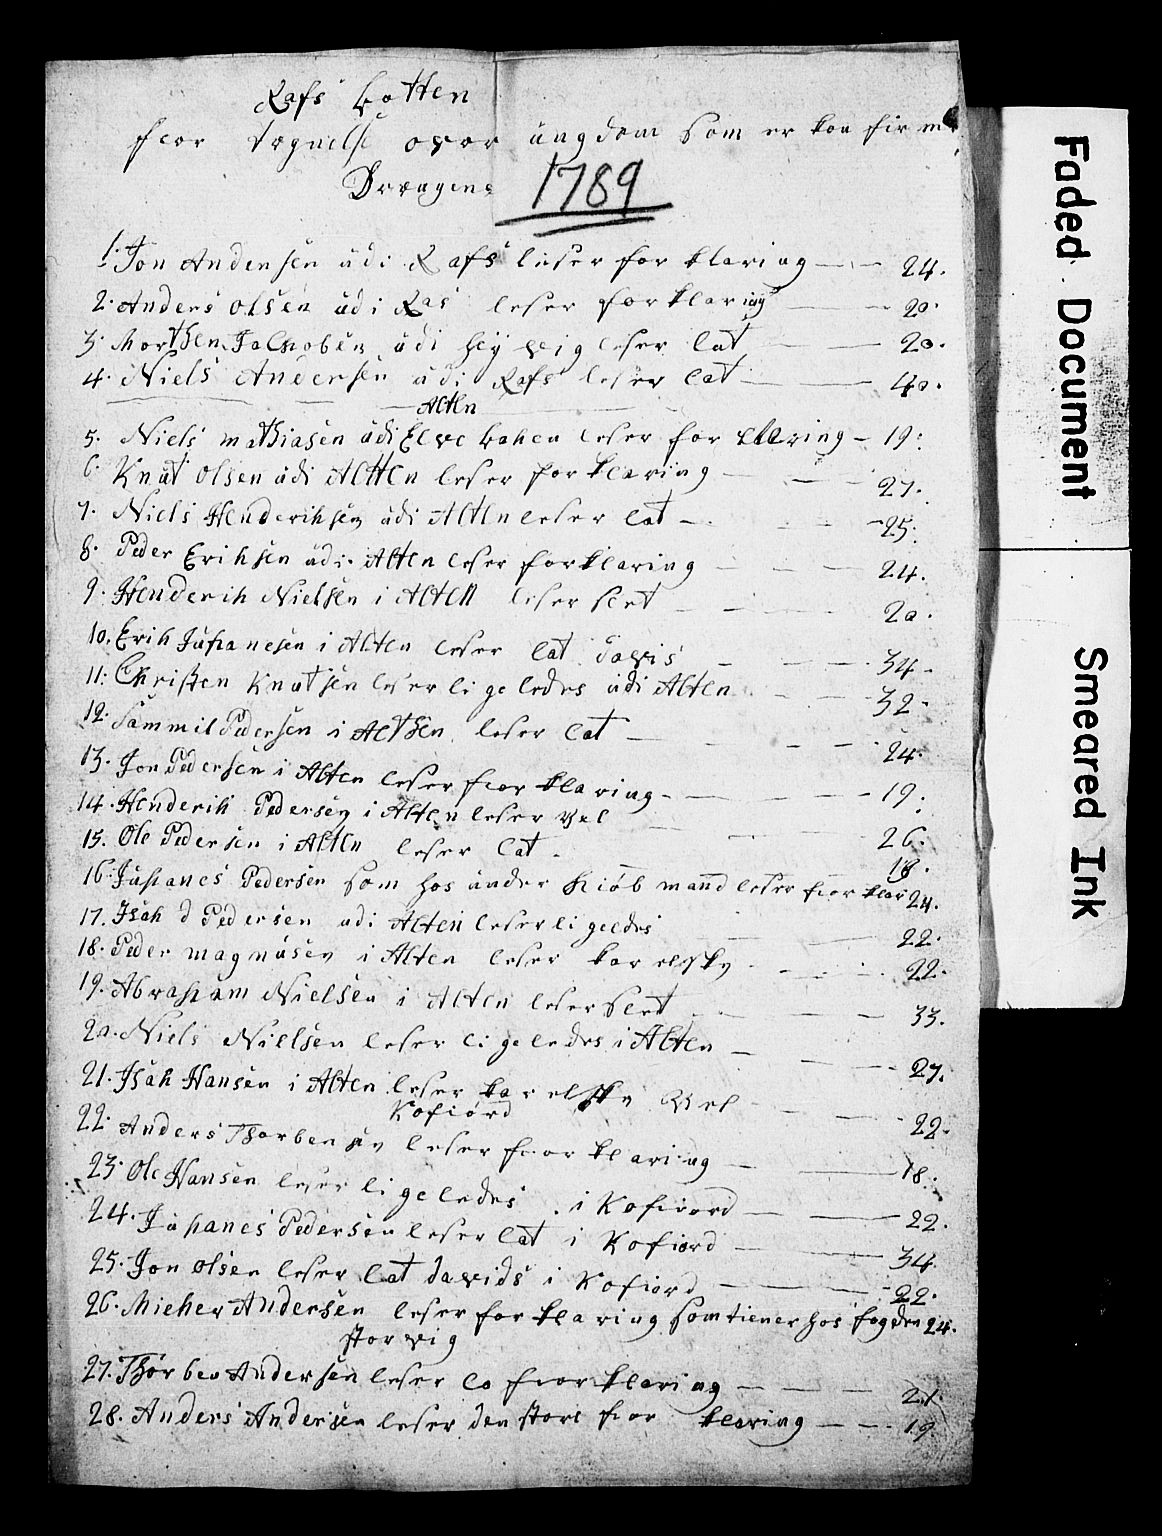 Rafs botten
fior tegnelse over ungdom som er kon firme
Drengene 1789
1. Jon Andersen udi Rafs leser forklaring 24.
2. Anders olsen udi Ras leser forklaring 20.
3. Morthen Jachobsen udi leser lat 20.
4. Niels Andersen udi Rafs leser lat 40.
Alten
5. Niels mathiasen udi Elvebaken leser forklaring 19.
6. Knut olsen udi Altten leser forklaring 27.
7. Niels Henderihsen udi Alten leser lat 25.
8. Peder Erihsen udi Alten leser forklaring 24.
9. Henderih Nielsen i Alten leser slet 20.
10. Erih Juhanesen i Alten leser lat davis 34.
11. Christen Knutsen leser ligeledes udi Alten 32.
12. Sammil Pedersen i Althen leser lat 24.
13. Jon Pedersen i Alten leser fior klaring 19.
14. Henderih Pedersen i Alten leser vel 26.
15. Ole Pedersen i Alten leser lat 18.
16. Juhanes Pedersen som hos under kiøbmand leser fior klar 24.
17. Isah d Pedersen udi Alten leser ligeldes 22.
18. Peder magnusen i Alten leser karelsky 22.
19. Abraham Nielsen i Alten leser slet 33.
20. Niels Nielsen leser ligeledes i Alten 27.
21. Isah Hansen i Alten leser karelsky vel 22.
Kofiord
22. Anders Thorbensen leser fior klaring 18.
23. Ole Hansen leser ligeledes i Kofiord 22.
24. Juhanes Pedersen leser lat i Kofiord 34.
25. Jon olsen leser lat davids i Kofiord 22.
26. Mieher Andersen leser forklaring som tiener hos fogden 24.
storvig
27. Thorben Andersen leser co fior klaring 21.
28. Anders Andersen leser den store fior klaring 19.
Faded Document
Smeared Ink